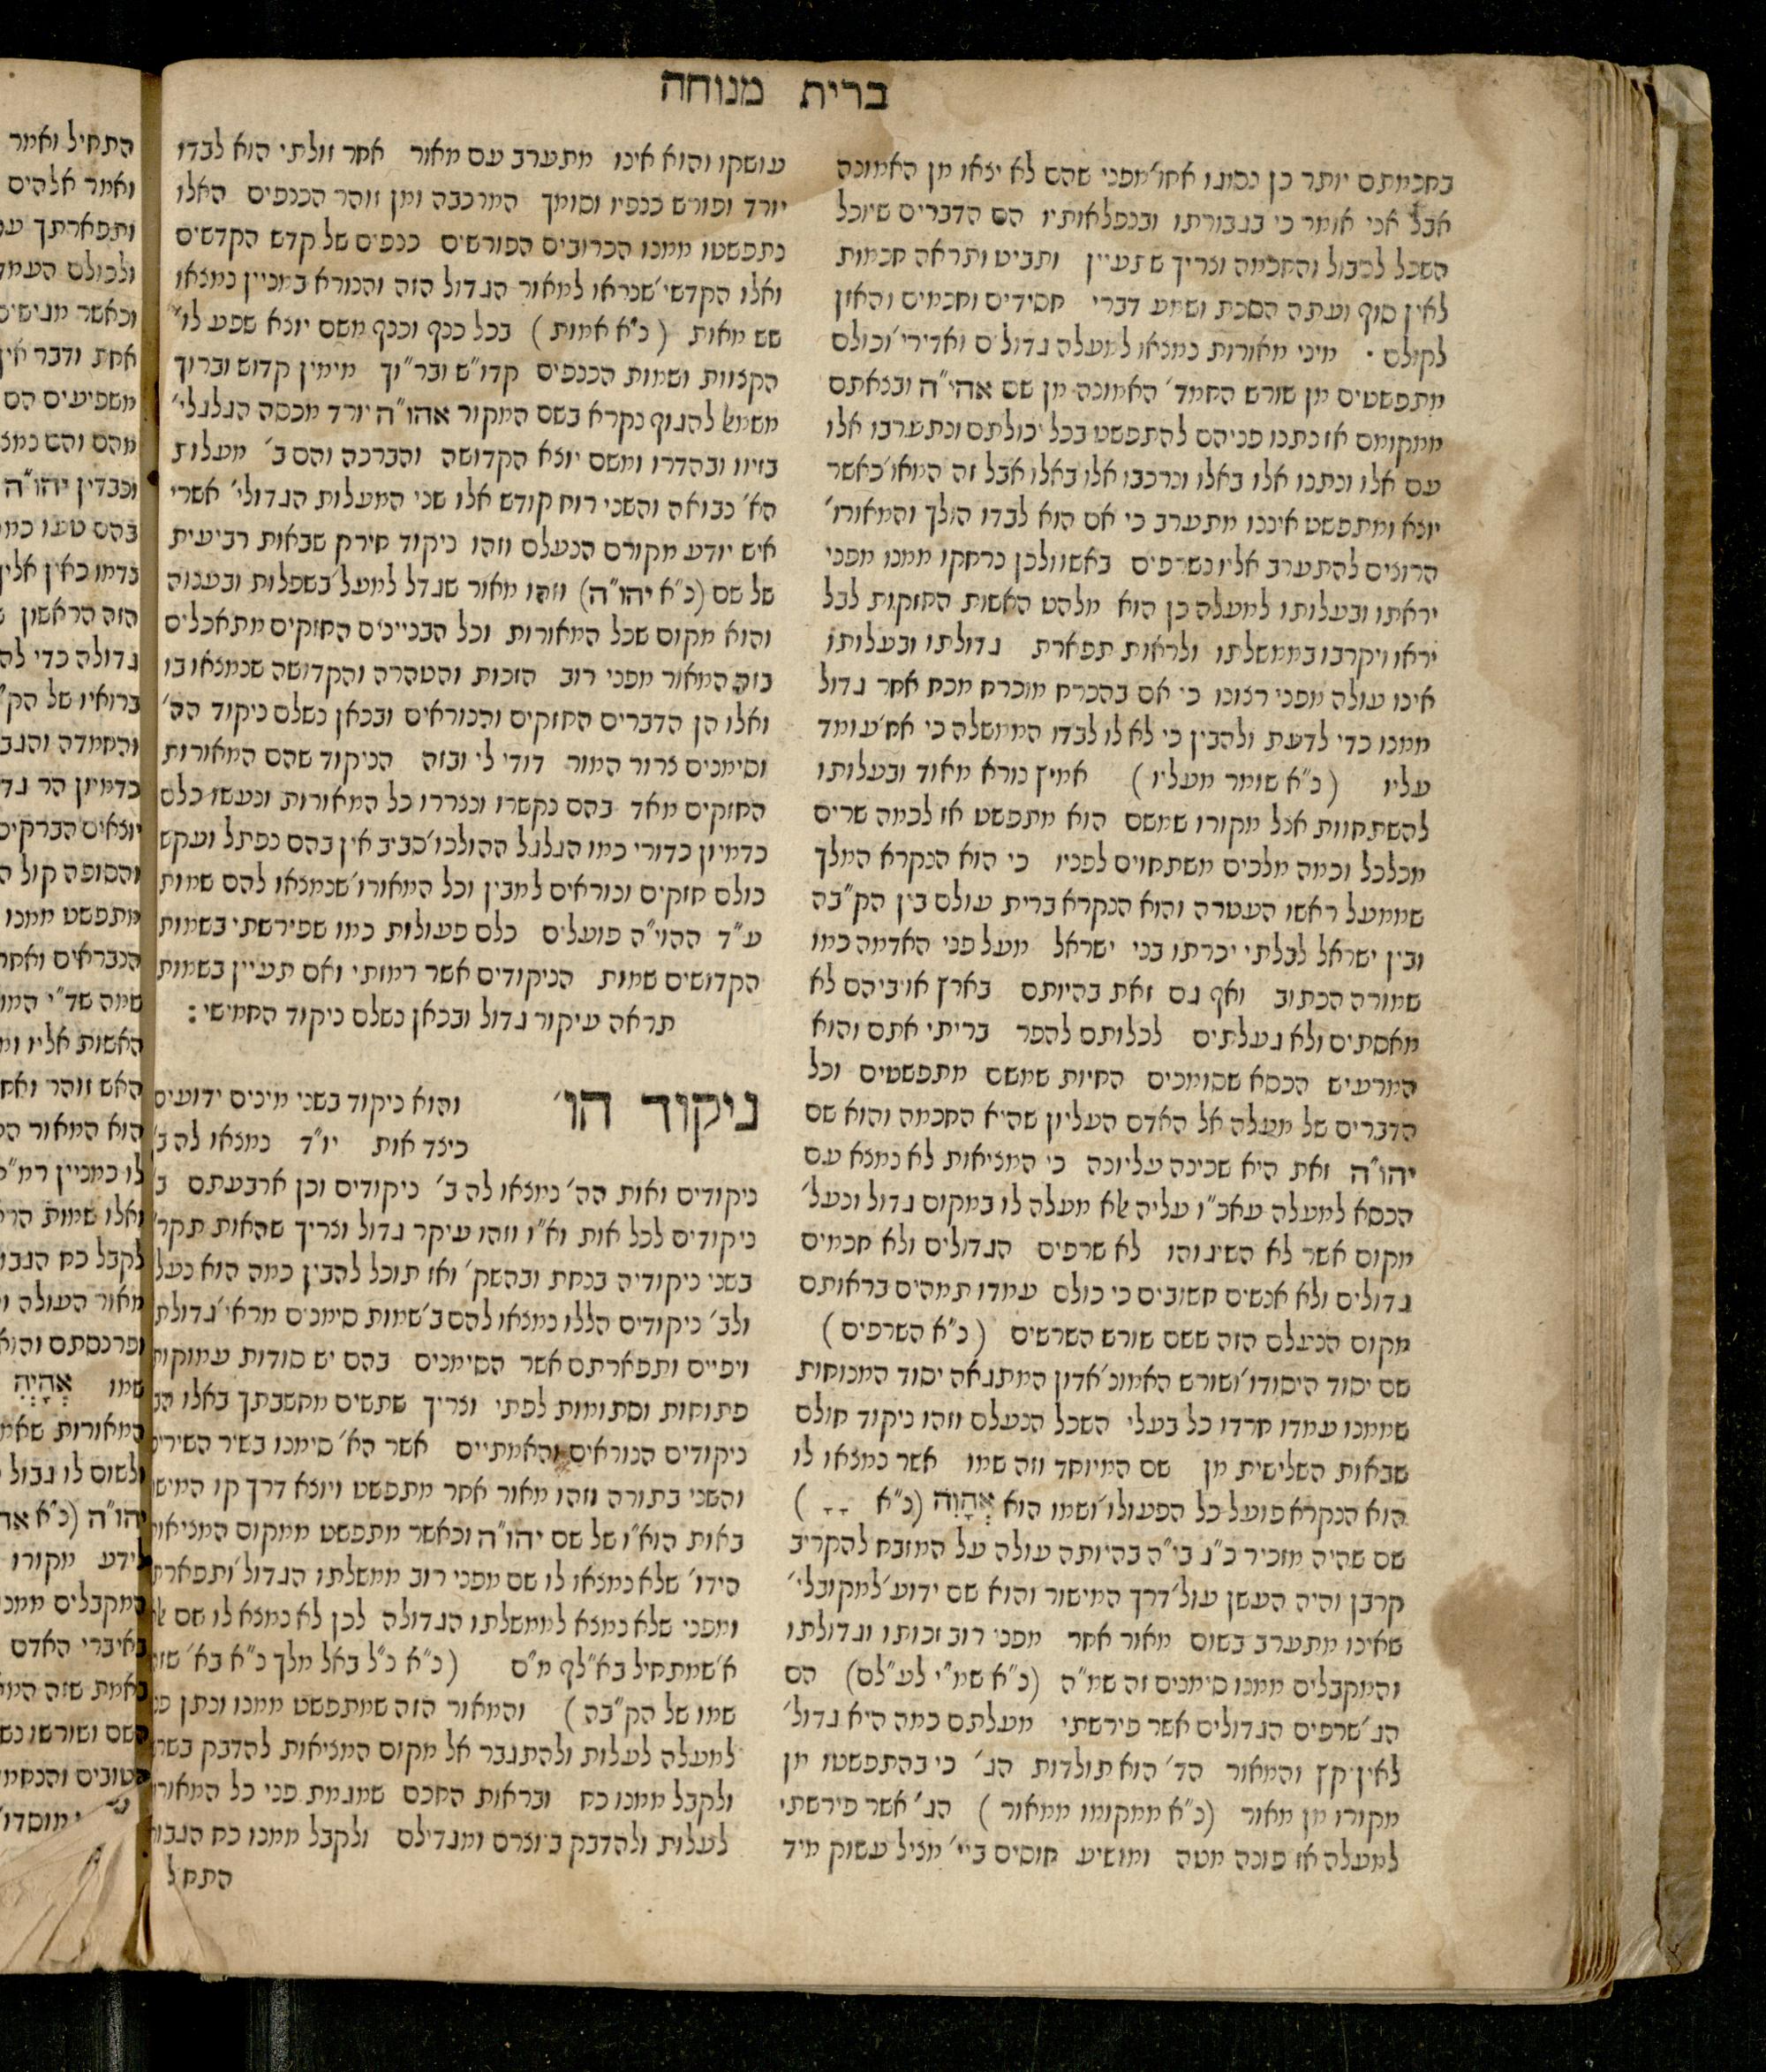 ברית מנוחה
בחכמתם יותר כן נסוגו אחו׳ מפני שהם לא יצאו מן האמונה
אבל אני אומר כי בגבורתו ובנפלאותיו הם הדברים שיוכל
השכל לסבול והחכמה וצריך שתעיין ותביט ותראה חכמות
לאין סוף ועתה הסכת ושמע דברי חסידים וחכמים והאזן
לקולם · מיני מאורות נמצאו למעלה גדולים ואדירי׳ וכולם
מתפשטים מן שורש החמד׳ האמונה מן שם אהי״ה ובצאתם
ממקומם אז נתנו פניהם להתפשט בכל יכולתם ונתערבו אלו
עם אלו ונתנו אלו באלו ונרכבו אלו באלו אבל זה המאו׳ כאשר
יוצא ומתפשט איננו מתערב כי אם הוא לבדו הולך והמאורו׳
הרוצים להתערב אליו נשרפים באשו ולכן נרחקו ממנו מפני
יראתו ובעלותו למעלה כן הוא מלהט האשות החזקות לבל
יראו ויקרבו בממשלתו ולראות תפארת גדולתו ובעלותו
אינו עולה מפני רצונו כי אם בהכרח מוכרח מכח אחר גדול
ממנו כדי לדעת ולהבין כי לא לו לבדו הממשלה כי אח׳ עומד
עליו (נ״א שומר מעליו) אמיץ נורא מאוד ובעלותו
להשתחוות אצל מקורו שמשם הוא מתפשט אז לכמה שרים
מכלכל וכמה מלכים משתחוים לפניו כי הוא הנקרא המלך
שממעל ראשו העטרה והוא הנקרא ברית עולם בין הק״בה
ובין ישראל לבלתי יכרתו בני ישראל מעל פני האדמה כמו
שמורה הכתוב ואף גם זאת בהיותם בארץ אויביהם לא
מאסתים ולא געלתים לכלותם להפר בריתי אתם והוא
המרעיש הכסא שסומכים החיות שמשם מתפשטים וכל
הדברים של מעלה אל האדם העליון שהיא החכמה והוא שם
יהו״ה זאת היא שכינה עליונה כי המציאות לא נמצא עם
הכסא למעלה עאכ״ו עליה אלא מעלה לו במקום גדול ונעל׳
מקום אשר לא השיגוהו לא שרפים הגדולים ולא חכמים
גדולים ולא אנשים חשובים כי כולם עמדו תמהים בראותם
מקום הנעלם הזה ששם שורש השרשים (נ״א השרפים)
שם יסוד היסודו׳ ושורש האמונ׳ אדון המתגאה יסוד המנוחות
שממנו עמדו חרדו כל בעלי השכל הנעלם וזהו ניקוד חולם
שבאות השלישית מן שם המיוחד וזה שמו אשר נמצאו לו
הוא הנקרא פועל כל הפעולו׳ ושמו הוא אְהָוִה (נ״א )
שם שהיה מזכיר כ״ג בי״ה בהיותה עולה על המזבח להקריב
קרבן והיה העשן עול׳ דרך המישור והוא שם ידוע׳ למקובלי׳
שאינו מתערב בשום מאור אחר מפני רוב זכותו וגדולתו
והמקבלים ממנו סימנים זה שמ״ה (נ״א שמ״י לע״לם) הם
הג׳ שרפים הגדולים אשר פירשתי מעלתם כמה היא גדול׳
לאין קץ והמאור הד׳ הוא תולדות הג׳ כי בהתפשטו מן
מקורו מן מאור (נ״א ממקומו ממאור) הג׳ אשר פירשתי
למעלה אז פונה מטה ומושיע חוסים ביי׳ מציל עשוק מיד
עושקו והוא אינו מתערב עם מאור אחר זולתי הוא לבדו
יורד ופורש כנפיו וסומך המרכבה ומן זוהר הכנפים האלו
נתפשטו ממנו הכרובים הפורשים כנפים של קדש הקדשים
ואלו הקדשי׳ שנראו למאור הגדול הזה והנורא במניין נמצאו
שש מאות (נ״א אמות) בכל כנף וכנף משם יוצא שפע לו׳
הקצוות ושמות הכנפים קדו״ש ובר״וך מימין קדוש וברוך
משמאל להגוף נקרא בשם המקור אהו״ה יורד מכסה הגלגלי׳
בזיוו ובהדרו ומשם יוצא הקדושה והברכה והם ב׳ מעלות
הא׳ נבואה והשני רוח קודש אלו שני המעלות הגדולי׳ אשרי
איש יודע מקורם הנעלם וזהו ניקוד חירק שבאות רביעית
של שם (נ״א יהו״ה) וזהו מאור שגדל למעל בשפלות ובענוה
והוא מקום שכל המאורות וכל הבניינים החזקים מתאכלים
בזה המאור מפני רוב הזכות והטהרה והקדושה שנמצאו בו
ואלו הן הדברים החזקים והנוראים ובכאן נשלם ניקוד הה׳
וסימנים צרור המור דודי לי ובזה הניקוד שהם המאורות
החזקים מאד בהם נקשרו ונצררו כל המאורות ונעשו כלם
כדמיון כדורי כמו הגלגל ההולכו׳ סביב אין בהם נפתל ועקש
כולם חזקים ונוראים למבין וכל המאורו׳ שנמצאו להם שמות
ע״ד ההוי״ה פועלים כלם פעולות כמו שפירשתי בשמות
הקדושים שמות הניקודים אשר רמותי ואם תעיין בשמות
תראה עיקור גדול ובכאן נשלם ניקוד החמישי:
ניקוד הו׳ והוא ניקוד בשני מינים ידועים
כיצד אות יו״ד נמצאו לה ב׳
ניקודים ואות הה׳ נמצאו לה ב׳ ניקודים וכן ארבעתם ב׳
ניקודים לכל אות וא״ו וזהו עיקר גדול וצריך שהאות תקר׳
בשני ניקודיה בנחת ובהשק׳ ואז תוכל להבין כמה הוא נעל
ולב׳ ניקודים הללו נמצאו להם ב׳ שמות סימנים מראי׳ גדולת
ויפיים ותפארתם אשר הסימנים בהם יש סודות עמוקות
פתוחות וסתומות לפתי וצריך שתשים מחשבתך באלו הב׳
ניקודים הנוראים והאמתיים אשר הא׳ סימנו בשיר השירים
והשני בתורה וזהו מאור אחר מתפשט ויוצא דרך קו המישו
באות הוא״ו של שם יהו״ה וכאשר מתפשט ממקום המציאות
הידו׳ שלא נמצאו לו שם מפני רוב ממשלתו הגדול׳ ותפארת
ומפני שלא נמצא לממשלתו הגדולה לכן לא נמצא לו שם אלא
א׳ שמתחיל בא״לף מ״ם (נ״א נ״ל באל מלך נ״א בא׳ שזה
שמו של הק״בה) והמאור הזה שמתפשט ממנו ונתן פני
למעלה לעלות ולהתגבר אל מקום המציאות להדבק בשר
ולקבל ממנו כח ובראות החכם שמגמת פני כל המאורו
לעלות ולהדבק ביוצרם ומגדילם ולקבל ממנו כח הגבור
התחל
התחיל ואמר
ואמר אלהים
ותפארתך
ולכולם
וכאשר מגישים
אחת ודבר אין
משפיעים הם
מהם והם
וכבדין יהו״ה
בהם טעו כמה
בדמו כאין
הזה הראשון
גדולה כדי
ברואיו של הק״
והחמדה
כדמיון הר
יוצאים הברקים
והסופה קול
מתפשט ממנו
הנבראים ואחר
שמה שד״י
האשות אליו
האש זוהר
הוא המאור
לו במניין
ואלו שמות
לקבל כח
מאור העולה
ופרנסתם והוא
שמו אְהָיְהִ
המאורות
ולשום לו גבול
יהו״ה (נ״א
לידע מקורו
המקבלים
באיברי האדם
באמת שזה
השם ושורשו
הטובים